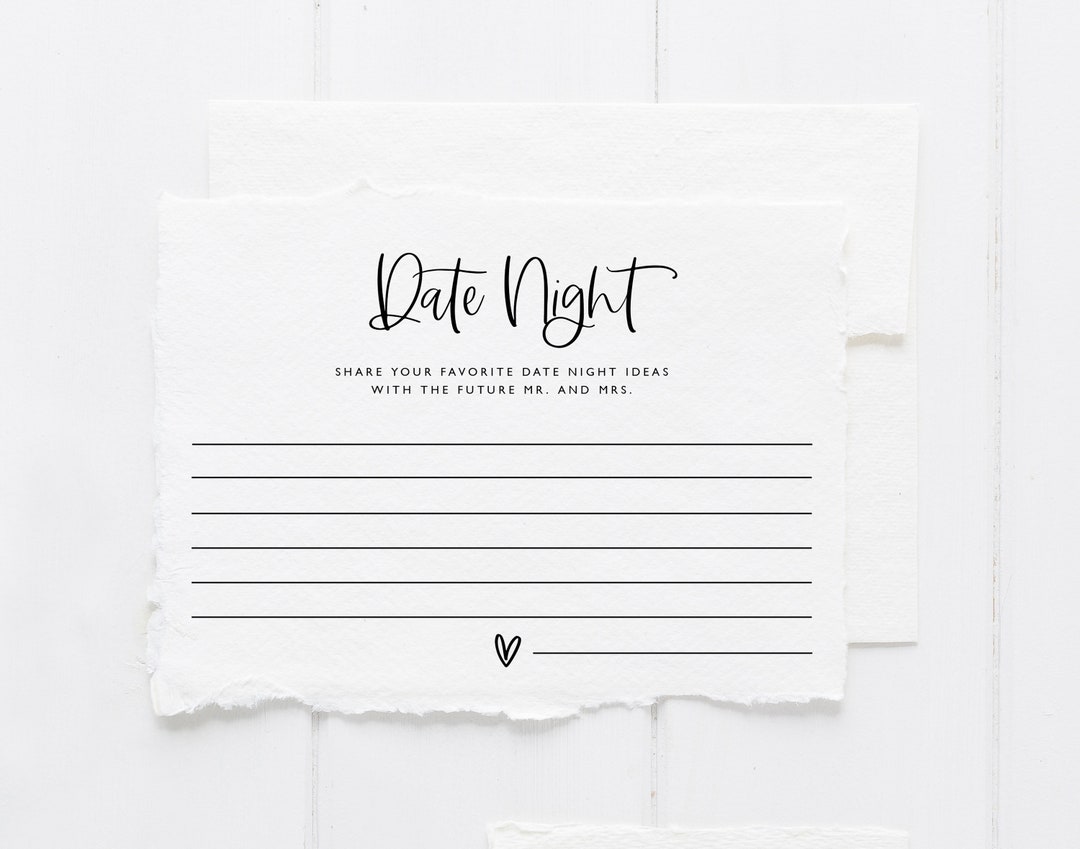 Date Night
SHARE YOUR FAVORITE DATE NIGHT IDEAS
WITH THE FUTURE MR. AND MRS.